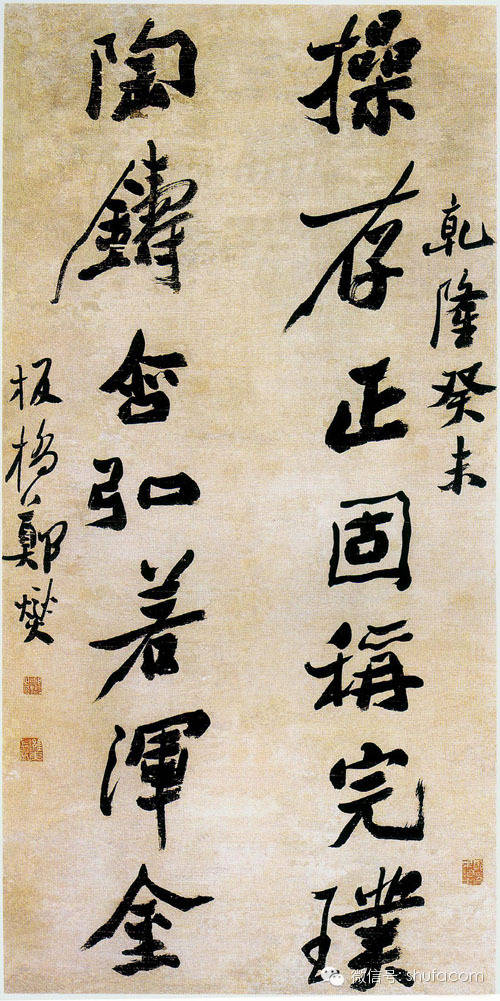 乾隆癸未
操存正固稱完璞
陶鑄含弘若渾金
板橋鄭燮
微信号: shufacom